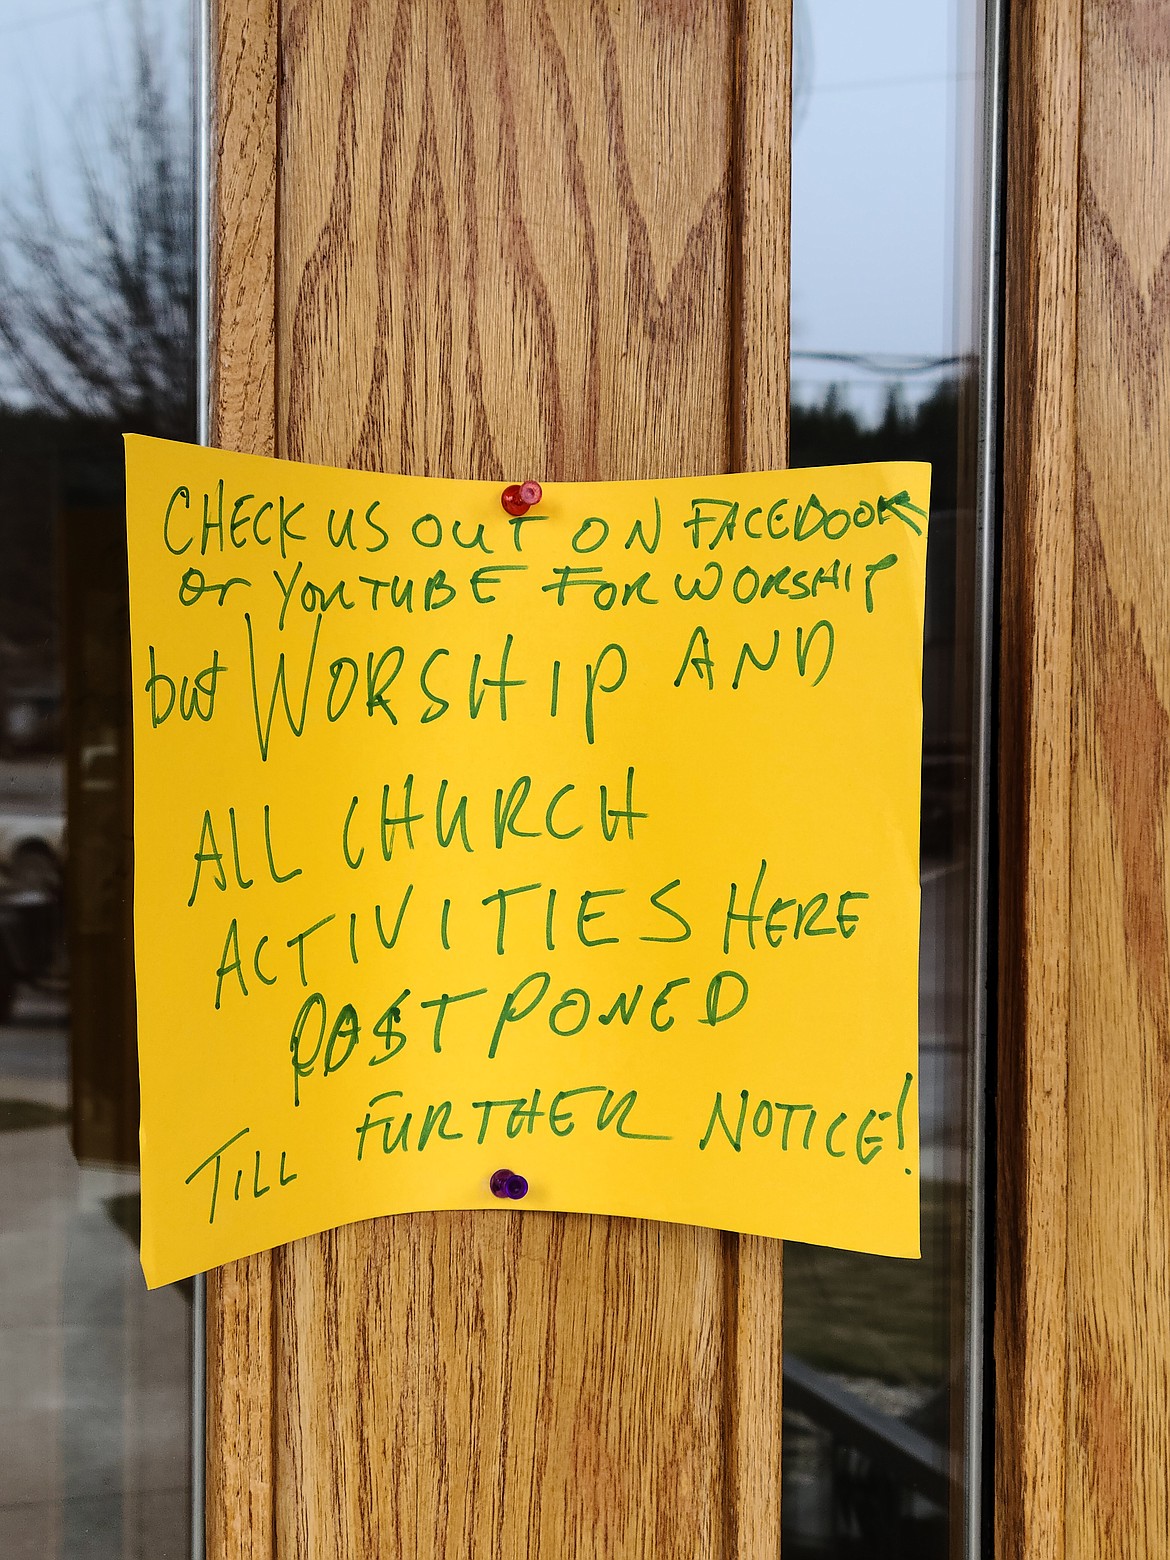 CHECK US OUT ON FACEBOOK
or YOUTUBE FOR WORSHIP
but WORSHIP AND
ALL CHURCH
ACTIVITIES HERE
POSTPONED
TILL FURTHER NOTICE!